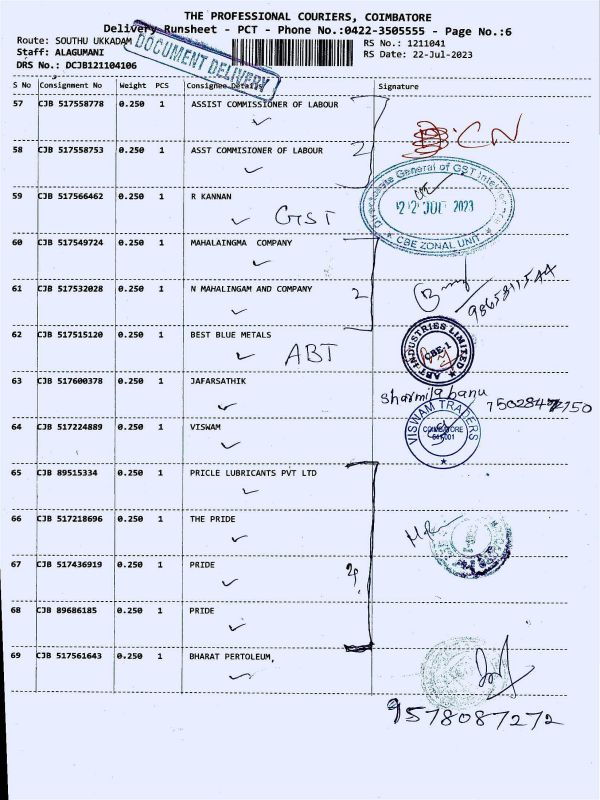 THE PROFESSIONAL COURIERS, COIMBATORE
Delivery Runsheet - PCT - Phone No.:0422-3505555 - Page No.:6
Route: SOUTHU UKKADAM
RS No.: 1211041
Staff: ALAGUMANI
RS Date: 22-Jul-2023
DRS No.: DCJB121104106
DOCUMENT DELIVERY
S No Consignment No Weight PCS Consignee Details Signature
57 CJB 517558778 0.250 1 ASSIST COMMISSIONER OF LABOUR
CN
58 CJB 517558753 0.250 1 ASST COMMISIONER OF LABOUR 2
Directorate General of GST
22 JUL 2023
CBE ZONAL UNIT
59 CJB 517566462 0.250 1 R KANNAN
GST
60 CJB 517549724 0.250 1 MAHALAINGMA COMPANY
61 CJB 517532028 0.250 1 N MAHALINGAM AND COMPANY 2
62 CJB 517515120 0.250 1 BEST BLUE METALS
ABT
ABT INDUSTRIES LIMITED
CBE-1
63 CJB 517600378 0.250 1 JAFARSATHIK
sharmila banu
64 CJB 517224889 0.250 1 VISWAM
VISWAM TRADERS
COIMBATORE
641001
65 CJB 89515334 0.250 1 PRICLE LUBRICANTS PVT LTD
66 CJB 517218696 0.250 1 THE PRIDE
67 CJB 517436919 0.250 1 PRIDE
68 CJB 89686185 0.250 1 PRIDE
69 CJB 517561643 0.250 1 BHARAT PERTOLEUM,
9578087272